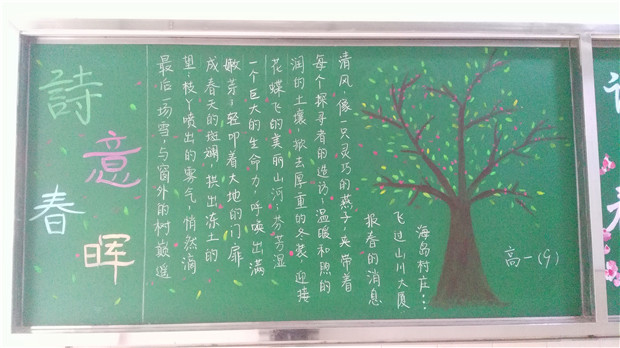 詩意春晖
最后一场雪,与窗外的树巅遥
望,枝丫喷出的雾气,悄然滴
成春天的斑斓,拱出冻土的
嫩芽,轻叩着大地的门扉
一个巨大的生命力,呼唤出满
花蝶飞的美丽山河,芬芳湿
润的土壤,去厚重的冬装,迎接
每个探寻者的造访,温暖和煦的
清风,像一只灵巧的燕子,夹带着
报春的消息
飞过山川大厦
海岛村庄…
高一(9)